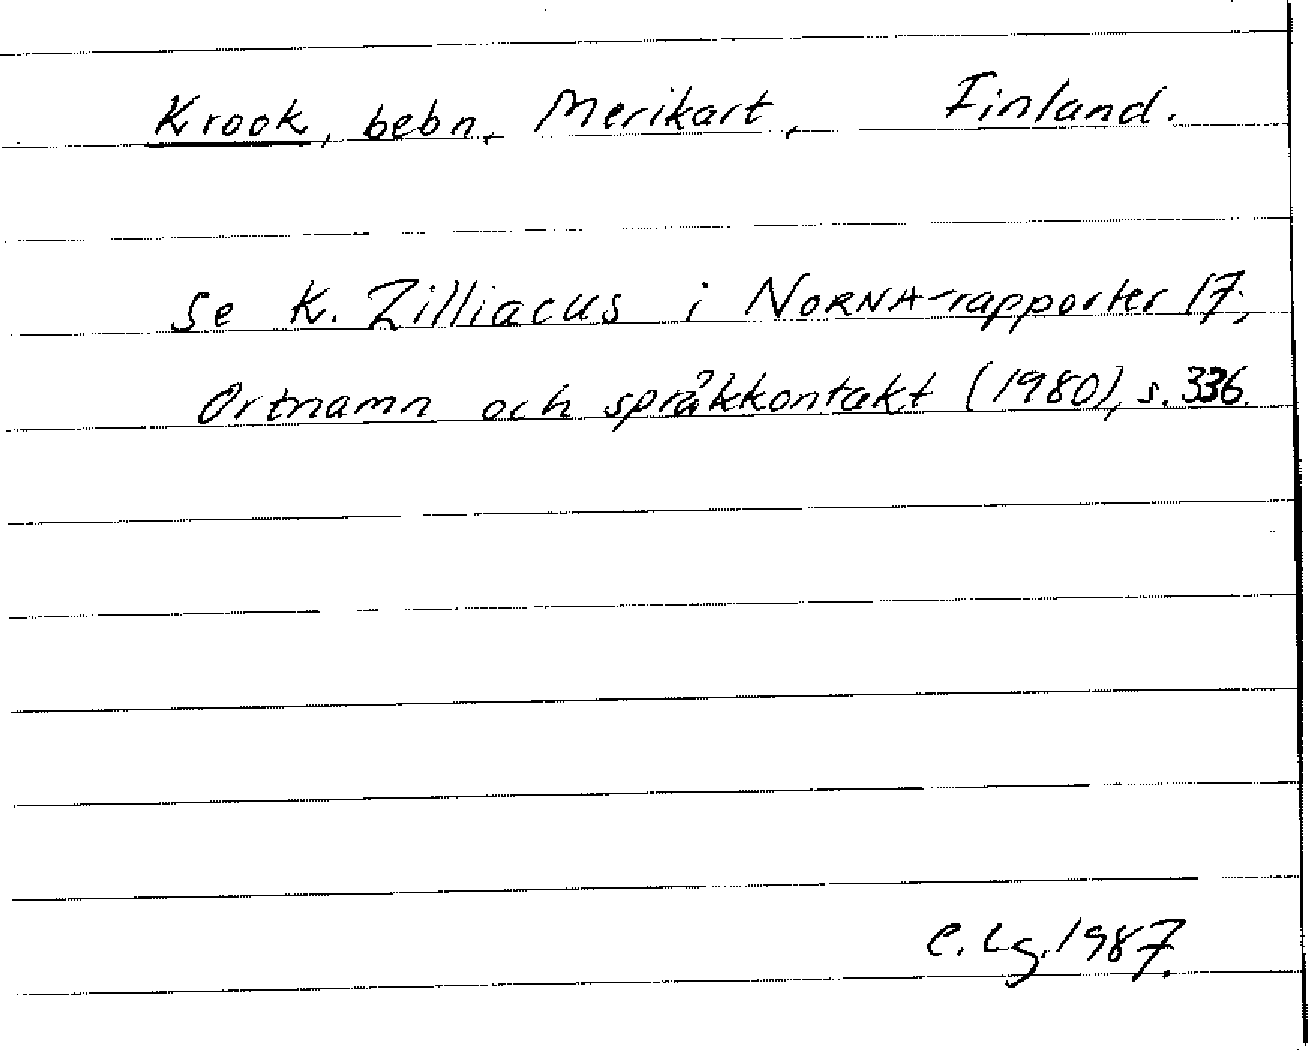 Krook, bebn, Merikart, Finland.
Se K. Zilliacus i NORNA-rapporter 17;
Ortnamn och språkkontakt (1980), s. 336.
C. Lg. 1987.